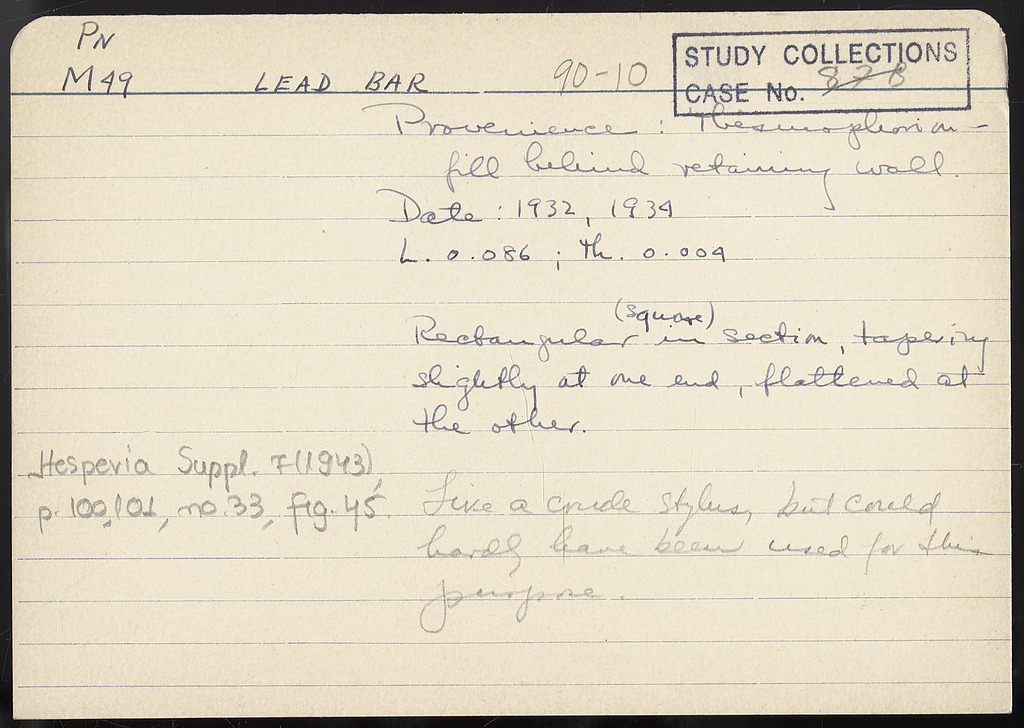 PN
M49 LEAD BAR 90-10
STUDY COLLECTIONS
CASE No. 87B
Provenience : Thesmophorion –
fill behind retaining wall.
Date : 1932, 1934
L. 0.086 ; Th. 0.004
(square)
Rectangular in section, tapering
slightly at one end, flattened at
the other.
Hesperia Suppl. 7 (1943),
p. 100,101, no. 33, fig. 45.
Like a crude stylus, but could
hardly have been used for this
purpose.